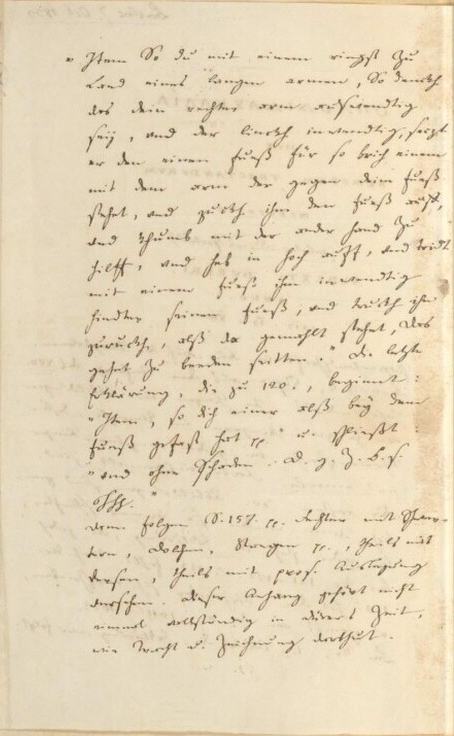 "Item So du mit einem ringst zu
Land eines langen armen, So denckh
das dein rechter arm auswendig
seÿ, und der linckh inwendig, setzt
er den einen Fueß für so brich einem
mit dem arm der gegen dem Fueß
stehet, und zuckh ihm den Fueß auff,
und khumb mit der ander hand zu
hilff, und heb in hoch auff, und tridt
mit einem Fueß ihm inwendig
hinder seinen Fueß, und truckh ihn
zuruckh, alß da gemahlt stehet, das
gehet zu beeden seitten." Die letzte
Erklärung, die zu 120., beginnt:
"Item, so dich einer alß beÿ dem
Fueß gefast hat pp." u. schließt:
"und ohne Schaden. D. g. z. b. s.
"
Dann folgen S. 157. pp. Fechter mit
Schwertern, Dolchen, Stangen pp., theils mit
Versen, theils mit pros. Auslegung
versehen. Dieser Anhang gehört nicht
einmal vollständig in Dürers Zeit,
wie Tracht u. Zeichnung darthut.